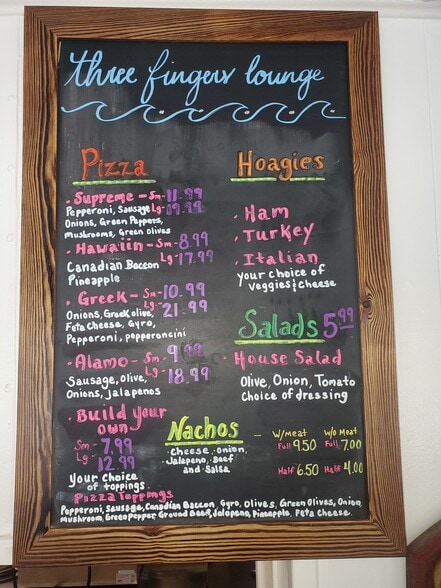 three fingers lounge
Pizza
• Supreme - Sm- 11.99
Pepperoni, Sausage Lg- 19.99
Onions, Green Peppers,
Mushrooms, Green Olives
• Hawaiin - Sm- 8.99
Lg- 17.99
Canadian Baccon
Pineapple
• Greek - Sm- 10.99
Onions, Greek olive, Lg- 21.99
Feta Cheese, Gyro,
Pepperoni, pepperoncini
• Alamo - Sm- 9.99
Sausage, Olive, Lg- 18.99
Onions, jalapenos
• Build your
own
Sm- 7.99
Lg- 12.99
your choice
of toppings
Hoagies
• Ham
• Turkey
• Italian
your choice of
veggies & cheese
Salads 5.99
• House Salad
Olive, Onion, Tomato
Choice of dressing
Nachos -
Cheese, Onion,
Jalapeno, Beef
and Salsa
W/meat W/o Meat
Full 9.50 Full 7.00
Half 6.50 Half 4.00
Pizza Toppings
Pepperoni, Sausage, Canadian Baccon, Gyro, Olives, Green Olives, Onion,
Mushroom, Green Pepper, Ground Beef, Jalopeno, Pineapple, Feta Cheese